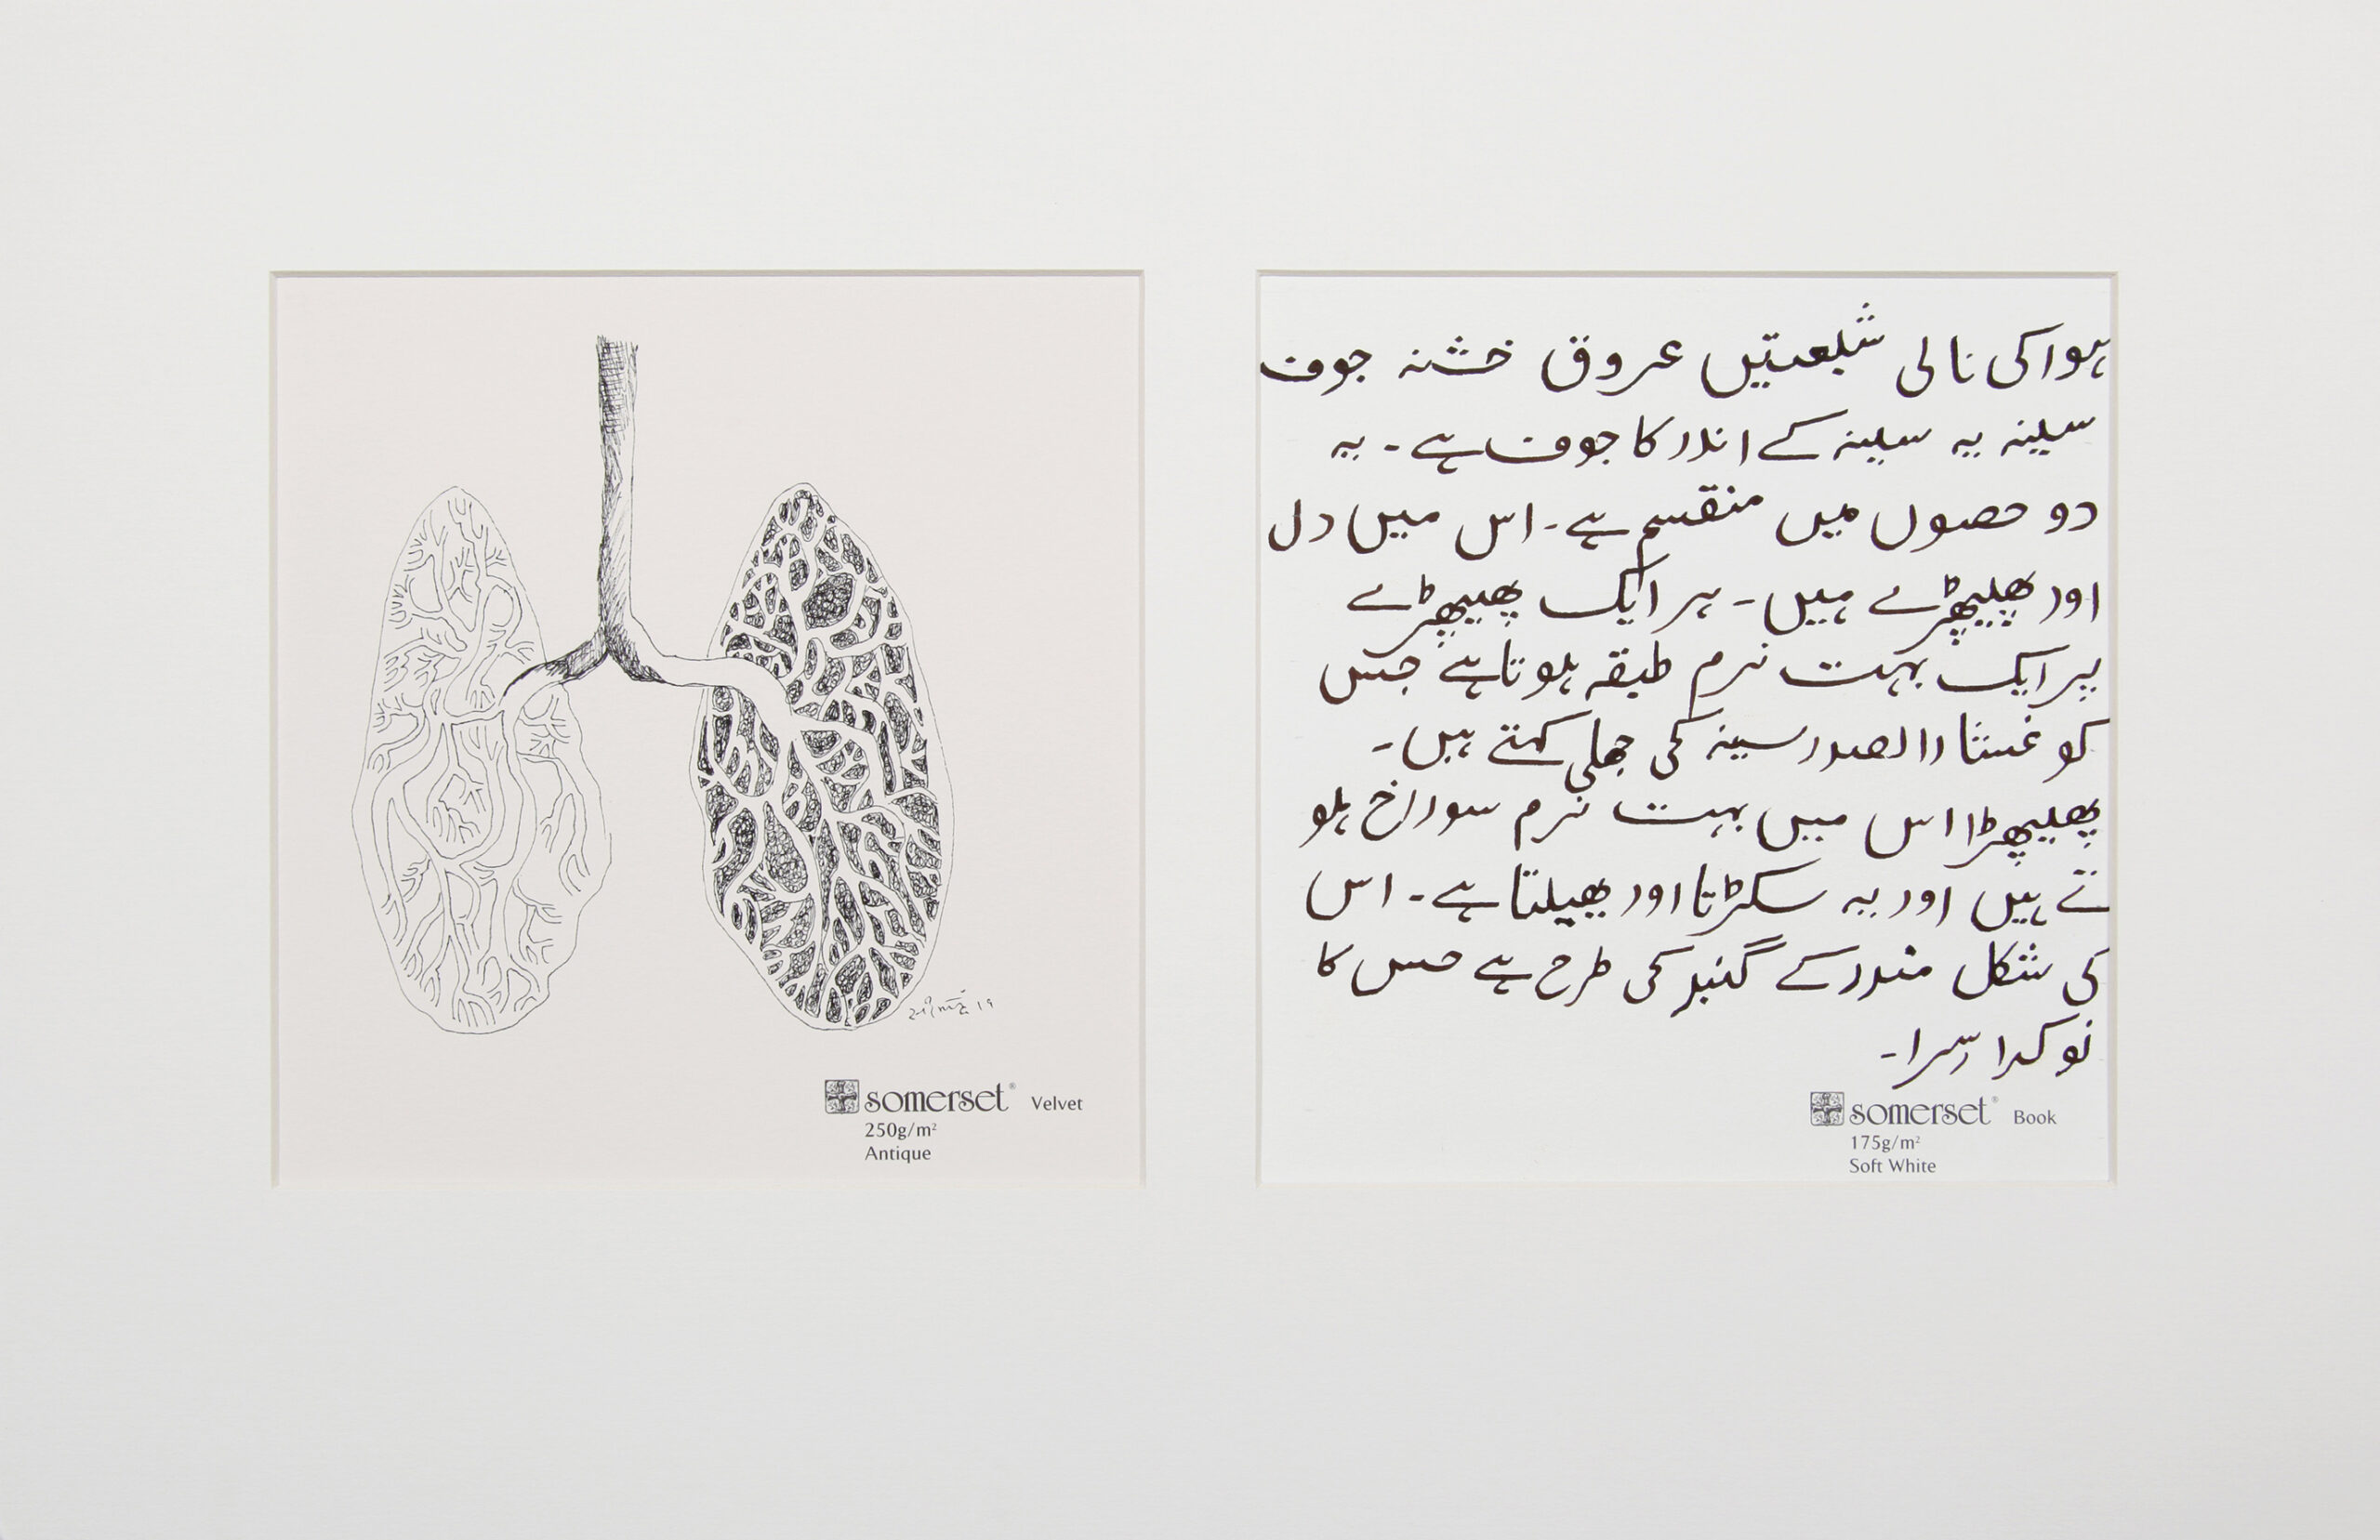 somerset® Velvet
250g/m²
Antique
ہوا کی نالی شعبتیں عروق خشنہ جوف
سینہ یہ سینہ کے اندر کا جوف ہے۔ یہ
دو حصوں میں منقسم ہے۔ اس میں دل
اور پھیپھڑے ہیں۔ ہر ایک پھیپھڑے
پر ایک بہت نرم طبقہ ہوتا ہے جس
کو غشا راالصدر سینہ کی جھلی کہتے ہیں۔
پھیپھڑا اس میں بہت نرم سوراخ ہو
تے ہیں اور یہ سکڑتا اور پھیلتا ہے۔ اس
کی شکل مندر کے گنبد کی طرح ہے جس کا
نوکدا رسرا۔
somerset® Book
175g/m²
Soft White